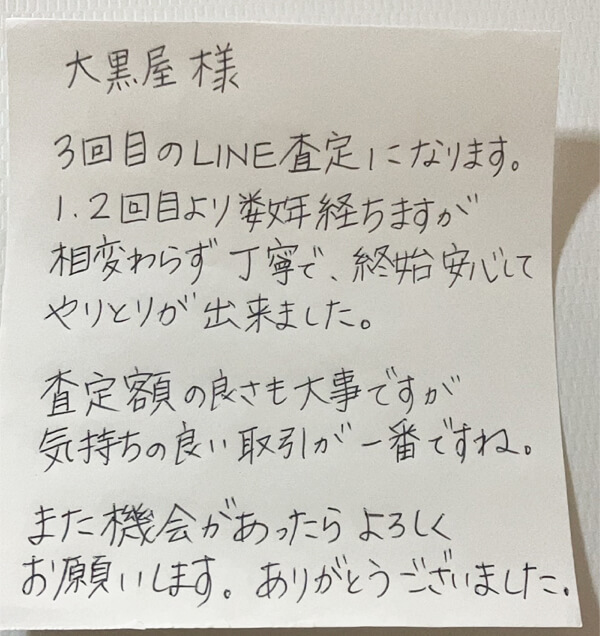 大黒屋 様
3回目のLINE査定になります。
1.2回目より数年経ちますが
相変わらず丁寧で、終始安心して
やりとりが出来ました。
査定額の良さも大事ですが
気持ちの良い取引が一番ですね。
また機会があったらよろしく
お願いします。ありがとうございました。